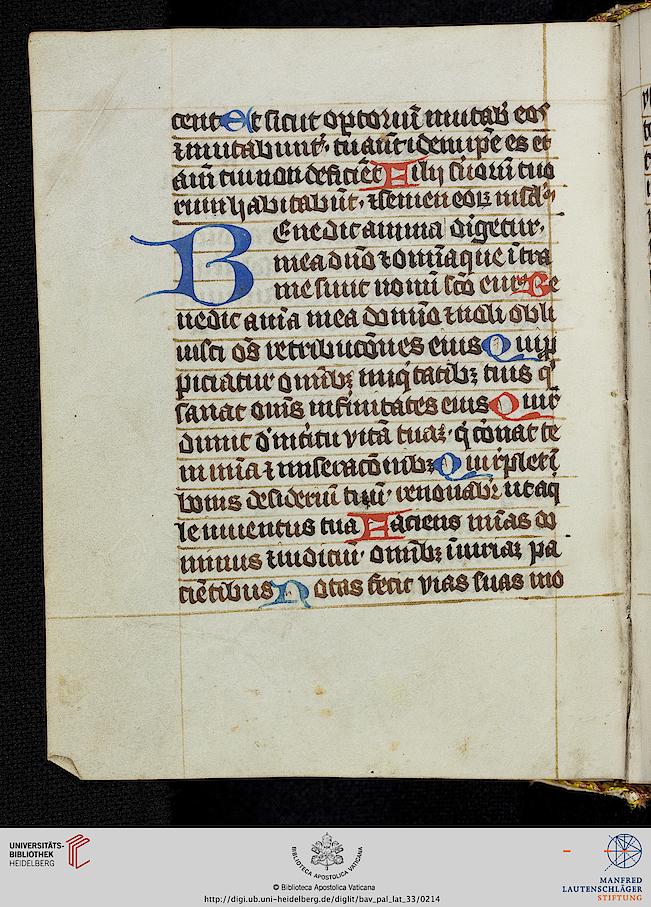 cent Et sicut optoriū mutab' eos
⁊ mutabunt' · tu aūt idem ip̄e es et
ām tui non deficiēt Filii ſuorū tuo
rum habitabūt · ⁊ semen eoꝝ in ſcl'm
Benedic anima diġetur ·
mea dn̄o ⁊ omīa que ītra
me sunt nomī sc̄o eius Be
nedic aīa mea domīo ⁊ noli obli
uisci oēs retribucōnes eius Qui ꝓ
piciatur omībꝫ iniqͥtatibꝫ tuis qͥ
sanat omēs infirmitates eius Qui r̄
dimit d' intitu vitā tuaꝫ · qͥ corōnat te
in mīa ⁊ miseracōnibꝫ Qui r̄plet ī
bonis desideriū tuū · renouabr̄ ut aqͥ
le iuuentus tua Faciens mīas do
minus ⁊ iudiciū · omībꝫ iniuriaꝫ pa
ciētibus Notas fecit vias suas mo
UNIVERSITÄTS-
BIBLIOTHEK
HEIDELBERG
BIBLIOTECA APOSTOLICA VATICANA
© Biblioteca Apostolica Vaticana
http://digi.ub.uni-heidelberg.de/diglit/bav_pal_lat_33/0214
MANFRED
LAUTENSCHLÄGER
STIFTUNG